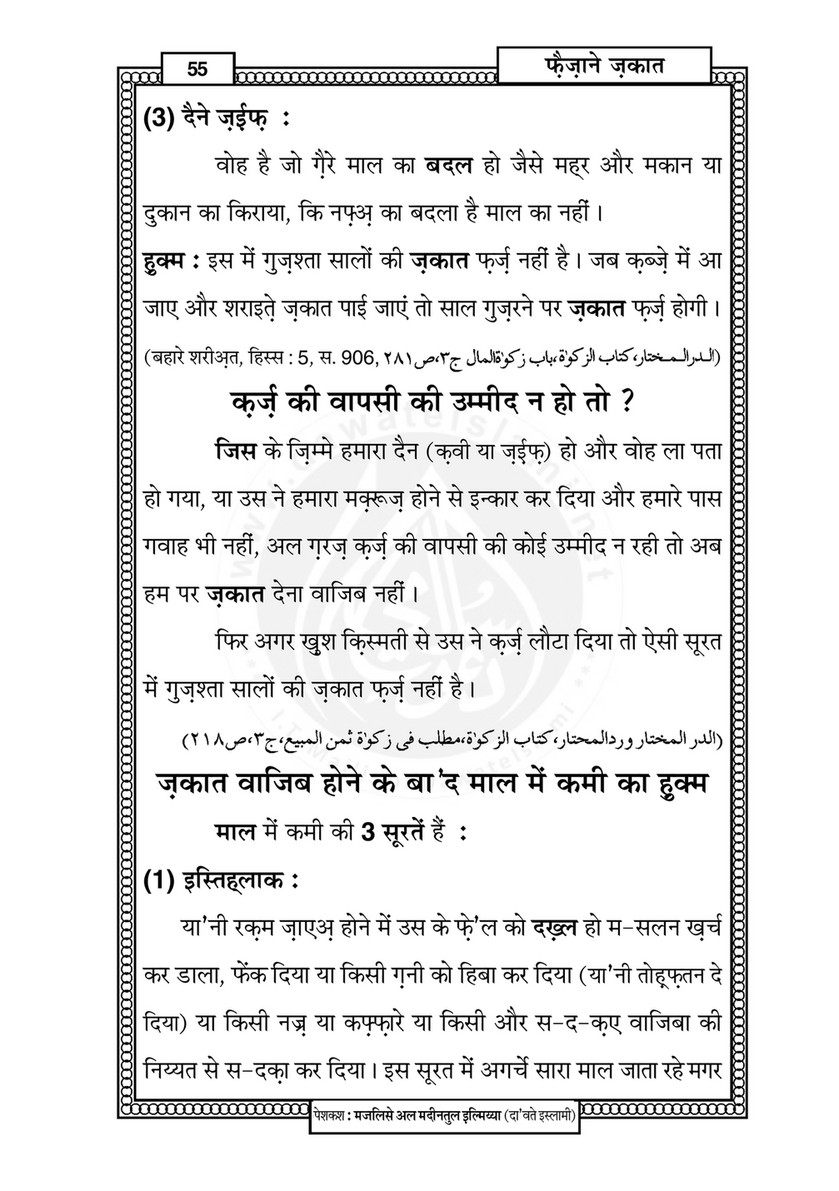 55
फ़ैज़ाने ज़कात
(3) दैने ज़ईफ़ :
वोह है जो ग़ैरे माल का बदल हो जैसे मह्र और मकान या
दुकान का किराया, कि नफ़्अ़ का बदला है माल का नहीं ।
हुक्म : इस में गुज़श्ता सालों की ज़कात फ़र्ज़ नहीं है । जब क़ब्ज़े में आ
जाए और शराइत़े ज़कात पाई जाएं तो साल गुज़रने पर ज़कात फ़र्ज़ होगी ।
(बहारे शरीअ़त, हिस्स : 5, स. 906, الدرالمختار،کتاب الزکوٰۃ،باب زکوٰۃالمال ج۳،ص۲۸۱)
क़र्ज़ की वापसी की उम्मीद न हो तो ?
जिस के ज़िम्मे हमारा दैन (क़वी या ज़ईफ़) हो और वोह ला पता
हो गया, या उस ने हमारा मक़्रूज़ होने से इन्कार कर दिया और हमारे पास
गवाह भी नहीं, अल ग़रज़ क़र्ज़ की वापसी की कोई उम्मीद न रही तो अब
हम पर ज़कात देना वाजिब नहीं ।
फिर अगर खुश क़िस्मती से उस ने क़र्ज़ लौटा दिया तो ऐसी सूरत
में गुज़श्ता सालों की ज़कात फ़र्ज़ नहीं है ।
(الدر المختار وردالمحتار،کتاب الزکوٰۃ،مطلب فی زکوٰۃ ثمن المبیع،ج۳،ص۲۱۸)
ज़कात वाजिब होने के बा'द माल में कमी का हुक्म
माल में कमी की 3 सूरतें हैं :
(1) इस्तिह्लाक :
या'नी रक़म ज़ाएअ़ होने में उस के फ़े'ल को दख़्ल हो म-सलन ख़र्च
कर डाला, फेंक दिया या किसी ग़नी को हिबा कर दिया (या'नी तोह़्फ़तन दे
दिया) या किसी नज़्र या कफ़्फ़ारे या किसी और स-द-क़ए वाजिबा की
निय्यत से स-दक़ा कर दिया । इस सूरत में अगर्चे सारा माल जाता रहे मगर
पेशकश : मजलिसे अल मदीनतुल इल्मिय्या (दा'वते इस्लामी)